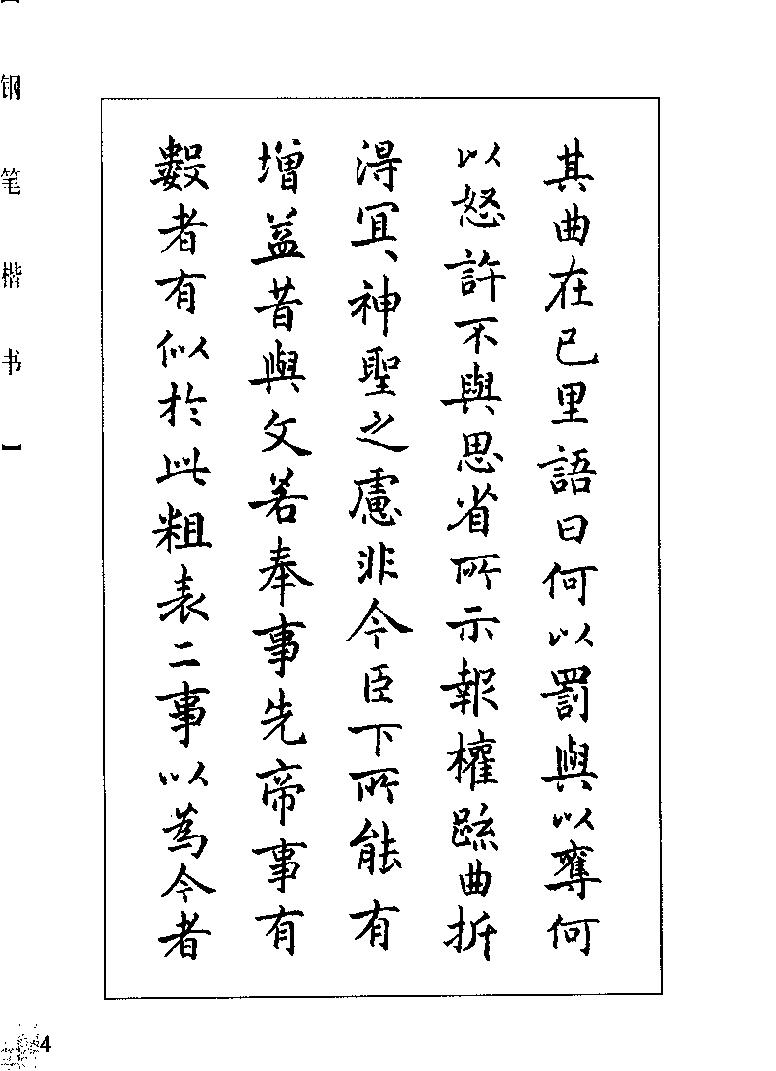 其曲在己里語曰何以罰與以奪何
以怒許不與思省所示報權疏曲折
得宜、神聖之慮非今臣下所能有
增益昔與文若奉事先帝事有
數者有似於此粗表二事以為今者
钢笔楷书】
4